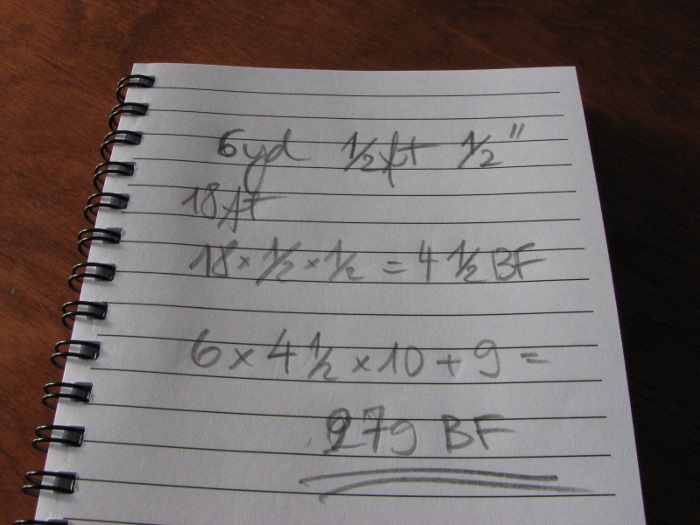 6yd 1/2ft 1/2"
18ft
18 × 1/2 × 1/2 = 4 1/2 BF
6 × 4 1/2 × 10 + 9 =
279 BF